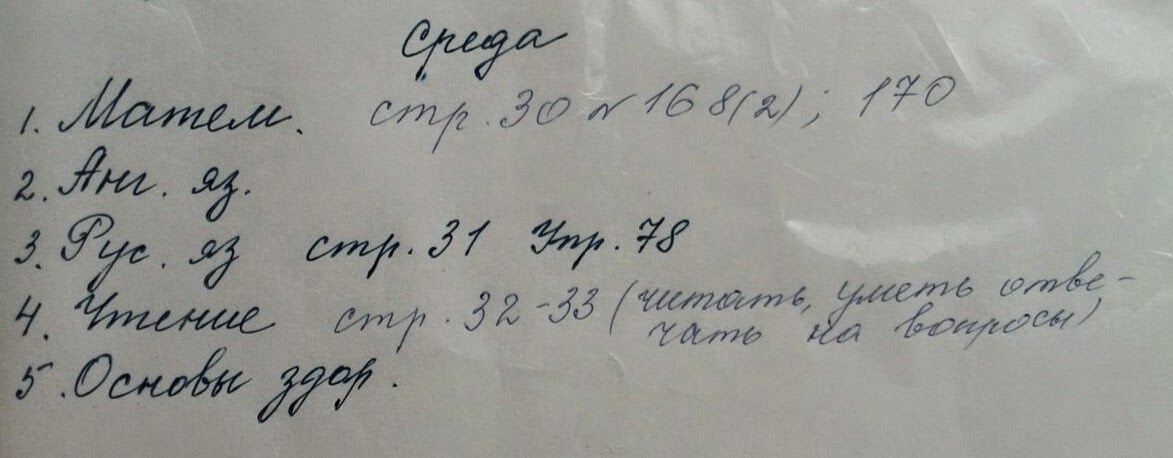 Среда
1. Матем. стр. 30 № 168(2); 170
2. Анг. яз.
3. Рус. яз стр. 31 Упр. 78
4. Чтение стр. 32-33 (читать, уметь отве-
чать на вопросы)
5. Основы здор.